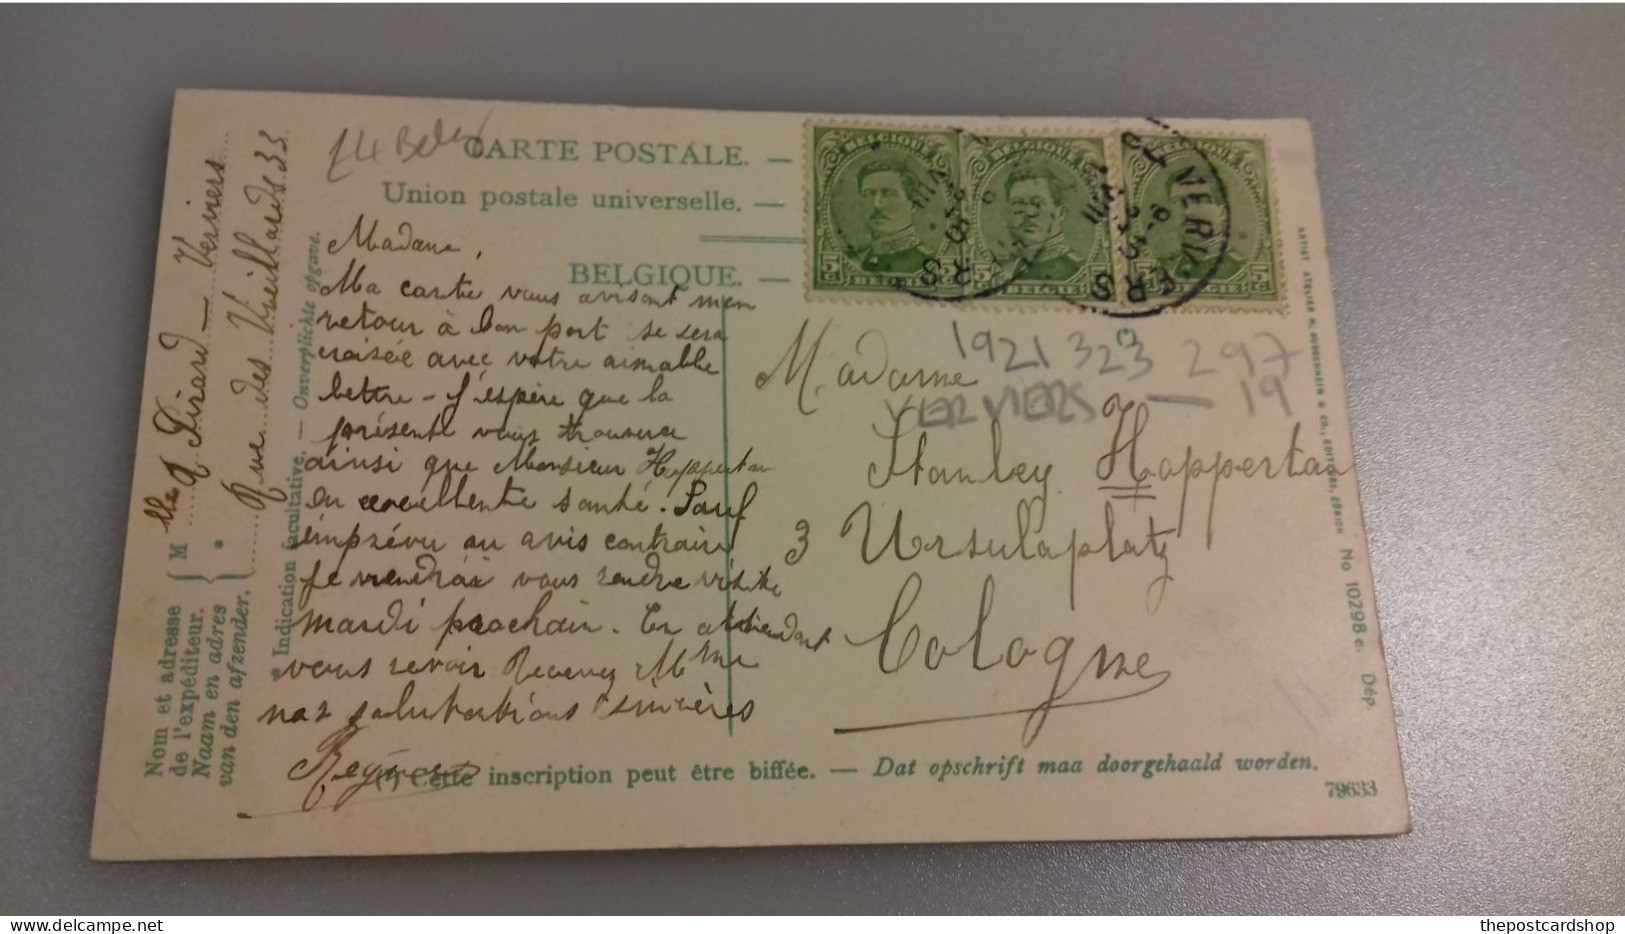 CARTE POSTALE. —
Union postale universelle. —
BELGIQUE. —
Madame,
Ma carte vous avisant mon
retour à bon port se sera
croisée avec votre aimable
lettre — J'espère que la
présente vous trouvera
ainsi que Monsieur
en excellente santé. Sauf
imprévu ou avis contraire
je viendrai vous rendre visite
mardi prochain. En attendant
vous revoir Recevez Mme
nos salutations sincères
BELGIQUE
5c
BELGIE
BELGIQUE
5c
BELGIE
BELGIQUE
5c
BELGIE
VERVIERS
1921 323 297
VERVIERS — 19
Madame
Stanley
3 Ursulaplatz
Cologne
Nom et adresse
de l'expéditeur.
Naam en adres
van den afzender.
M lle — Verviers
Rue des 33
* Indication facultative. — Onverplichte opgave.
(*) Cette inscription peut être biffée. — Dat opschrift maa doorgehaald worden.
79633
No 10298 c. Dép.
delcampe.net
thepostcardshop